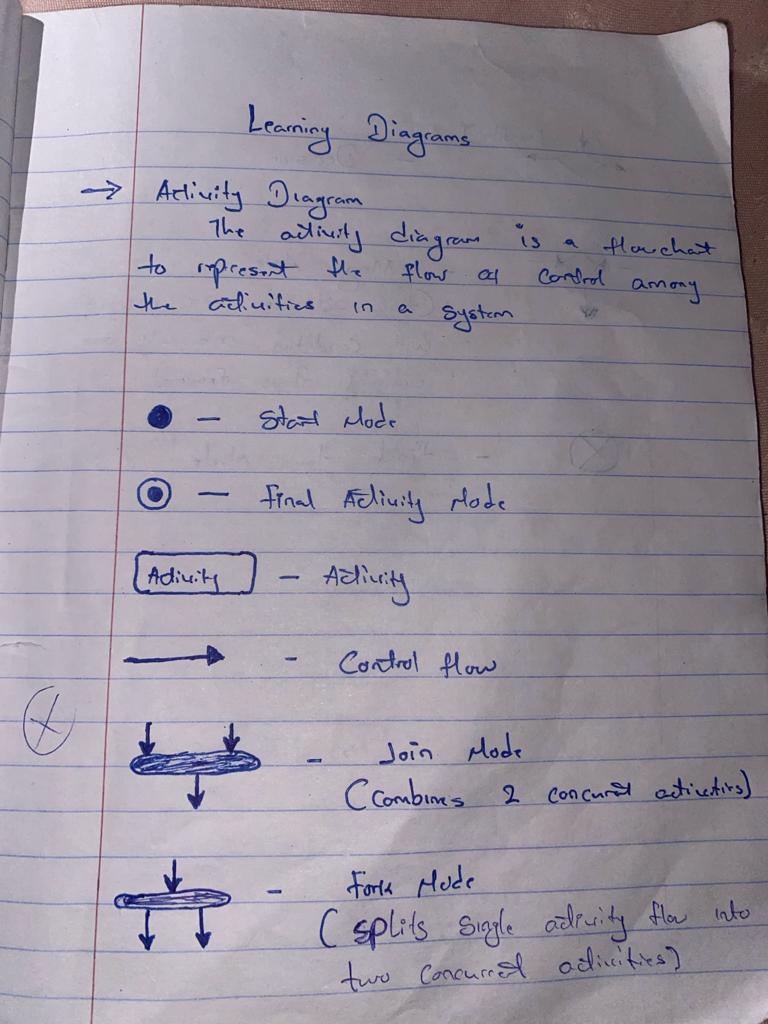 Learning Diagrams
→ Activity Diagram
The activity diagram is a flowchart
to represent the flow of control among
the activities in a system
— Start Node
— Final Activity Node
Activity — Activity
- Control flow
- Join Node
(Combines 2 concurrent activities)
- Fork Node
( splits single activity flow into
two concurrent activities)